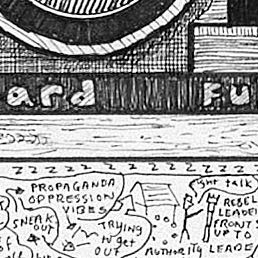 ard fu
z z z z z z z z z z z z z z
PROPAGANDA
OPPRESSION
VIBES
SNEAK
OUT
TRYING
to get
OUT
AUTHORITY
shit talk
REBEL
LEADE
FRONTS
UP TO
LEADE